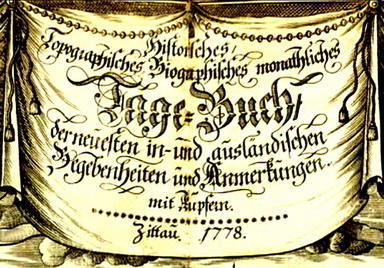 Historisches,
Topographisches Biographisches monathliches
Tage-Buch/
der neuesten in- und ausländischen
Begebenheiten und Anmerkungen.
mit Kupfern.
Zittau. 1778.